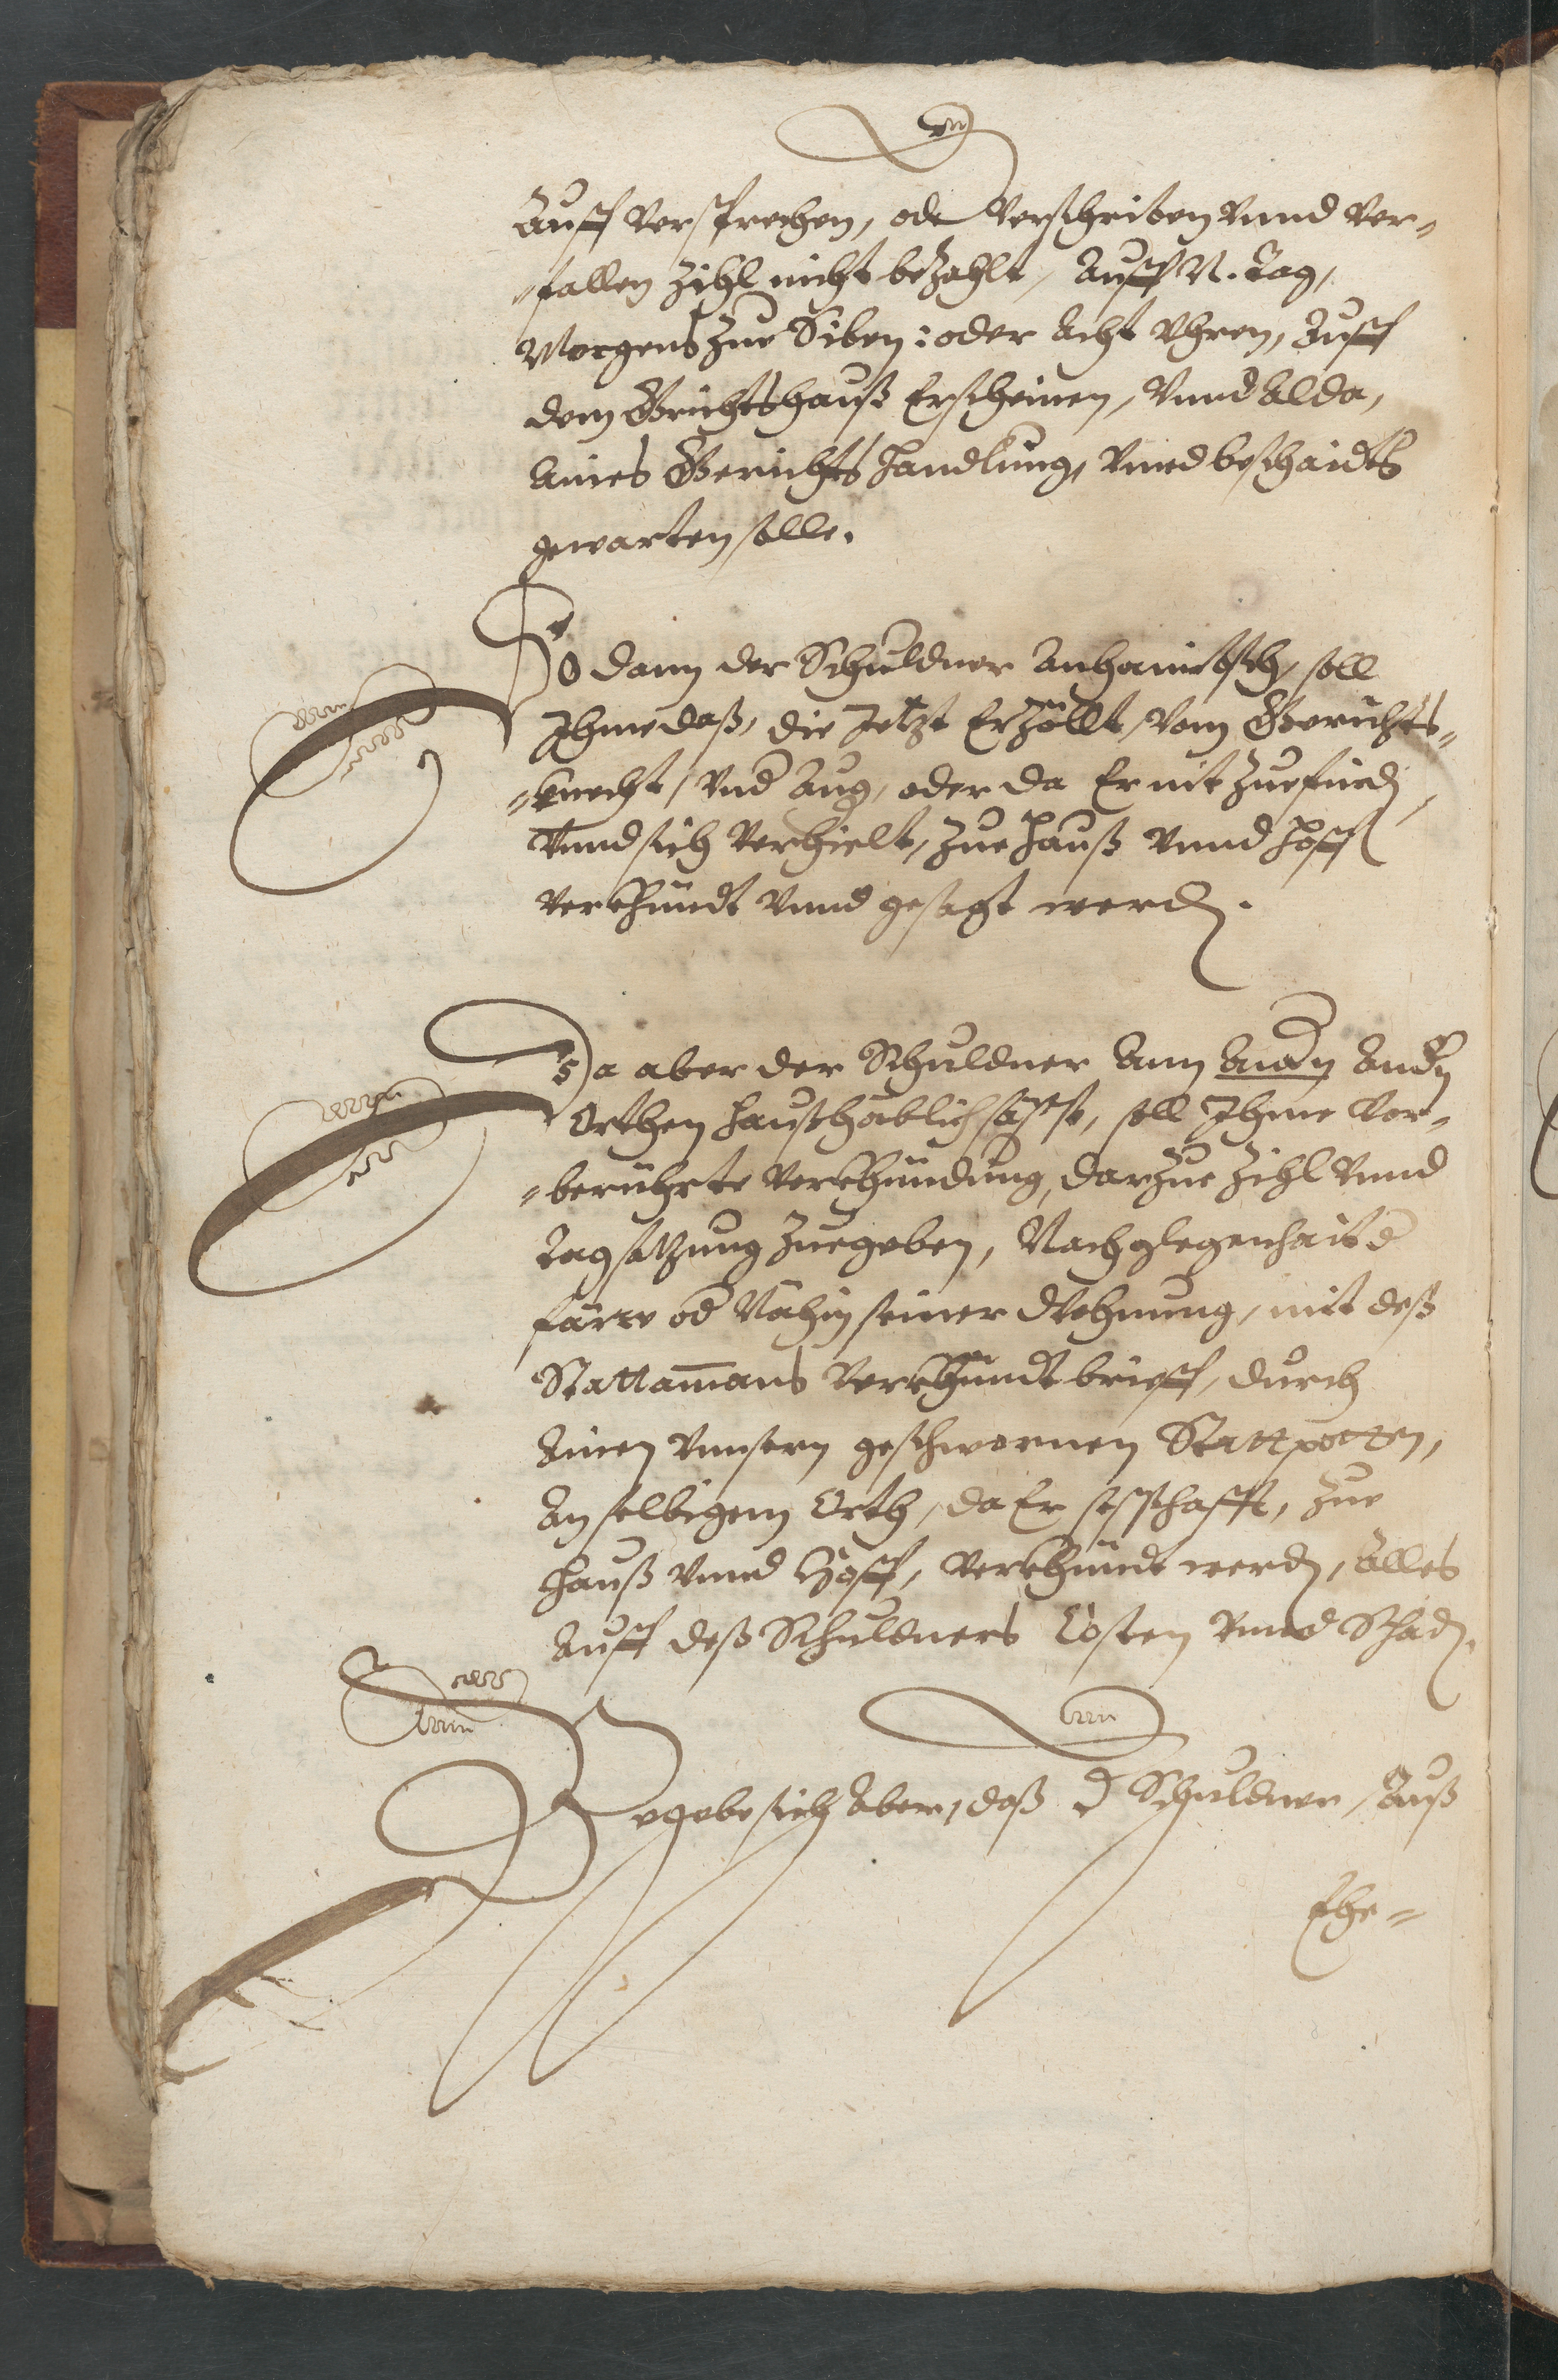 Auff versprechen, ode verschriben vnnd ver-
-fallen Zihl nicht bezahlt, Auff N. Tag,
Morgens zue Siben: oder Acht Vhren, Auff
dem Grichtshauß Erscheinen, Vnnd Alda,
Aines Gerichts Handlung, Vnnd beschaidts
gewarten solle.
So dann der Schuldner Anhaimbsch, soll
Ihme daß, die Jetzt Erzöllt, Vom Gerichts-
-knecht, Vnd Aug, oder da Er nit zuefind,
Vnnd sich Verhielt, zue Hauß Vnnd Hoff
verkhündt Vnnd gesagt werden.
Da aber der Schuldner Ann Andern
Orthen haußhäblich sässe, soll Ihme Vor-
-berührte Verkhündung, darzue Zihl Vnnd
Tagsatzung Zuegeben, Nach glegenhait d
färre od Nähin seiner Wohnung, mit deß
Stattamans Verkhündt brieff, durch
Ainen Vnnsern geschwornen Stattpotten,
An selbigem Orth, da Er sesshafft, zue
Hauß Vnnd Hoff, Verkhündt werden, Alles
Auff deß Schuldners Costen Vnnd Schaden.
Begebe sich Aber, daß d Schuldner, Auß
Ehe-